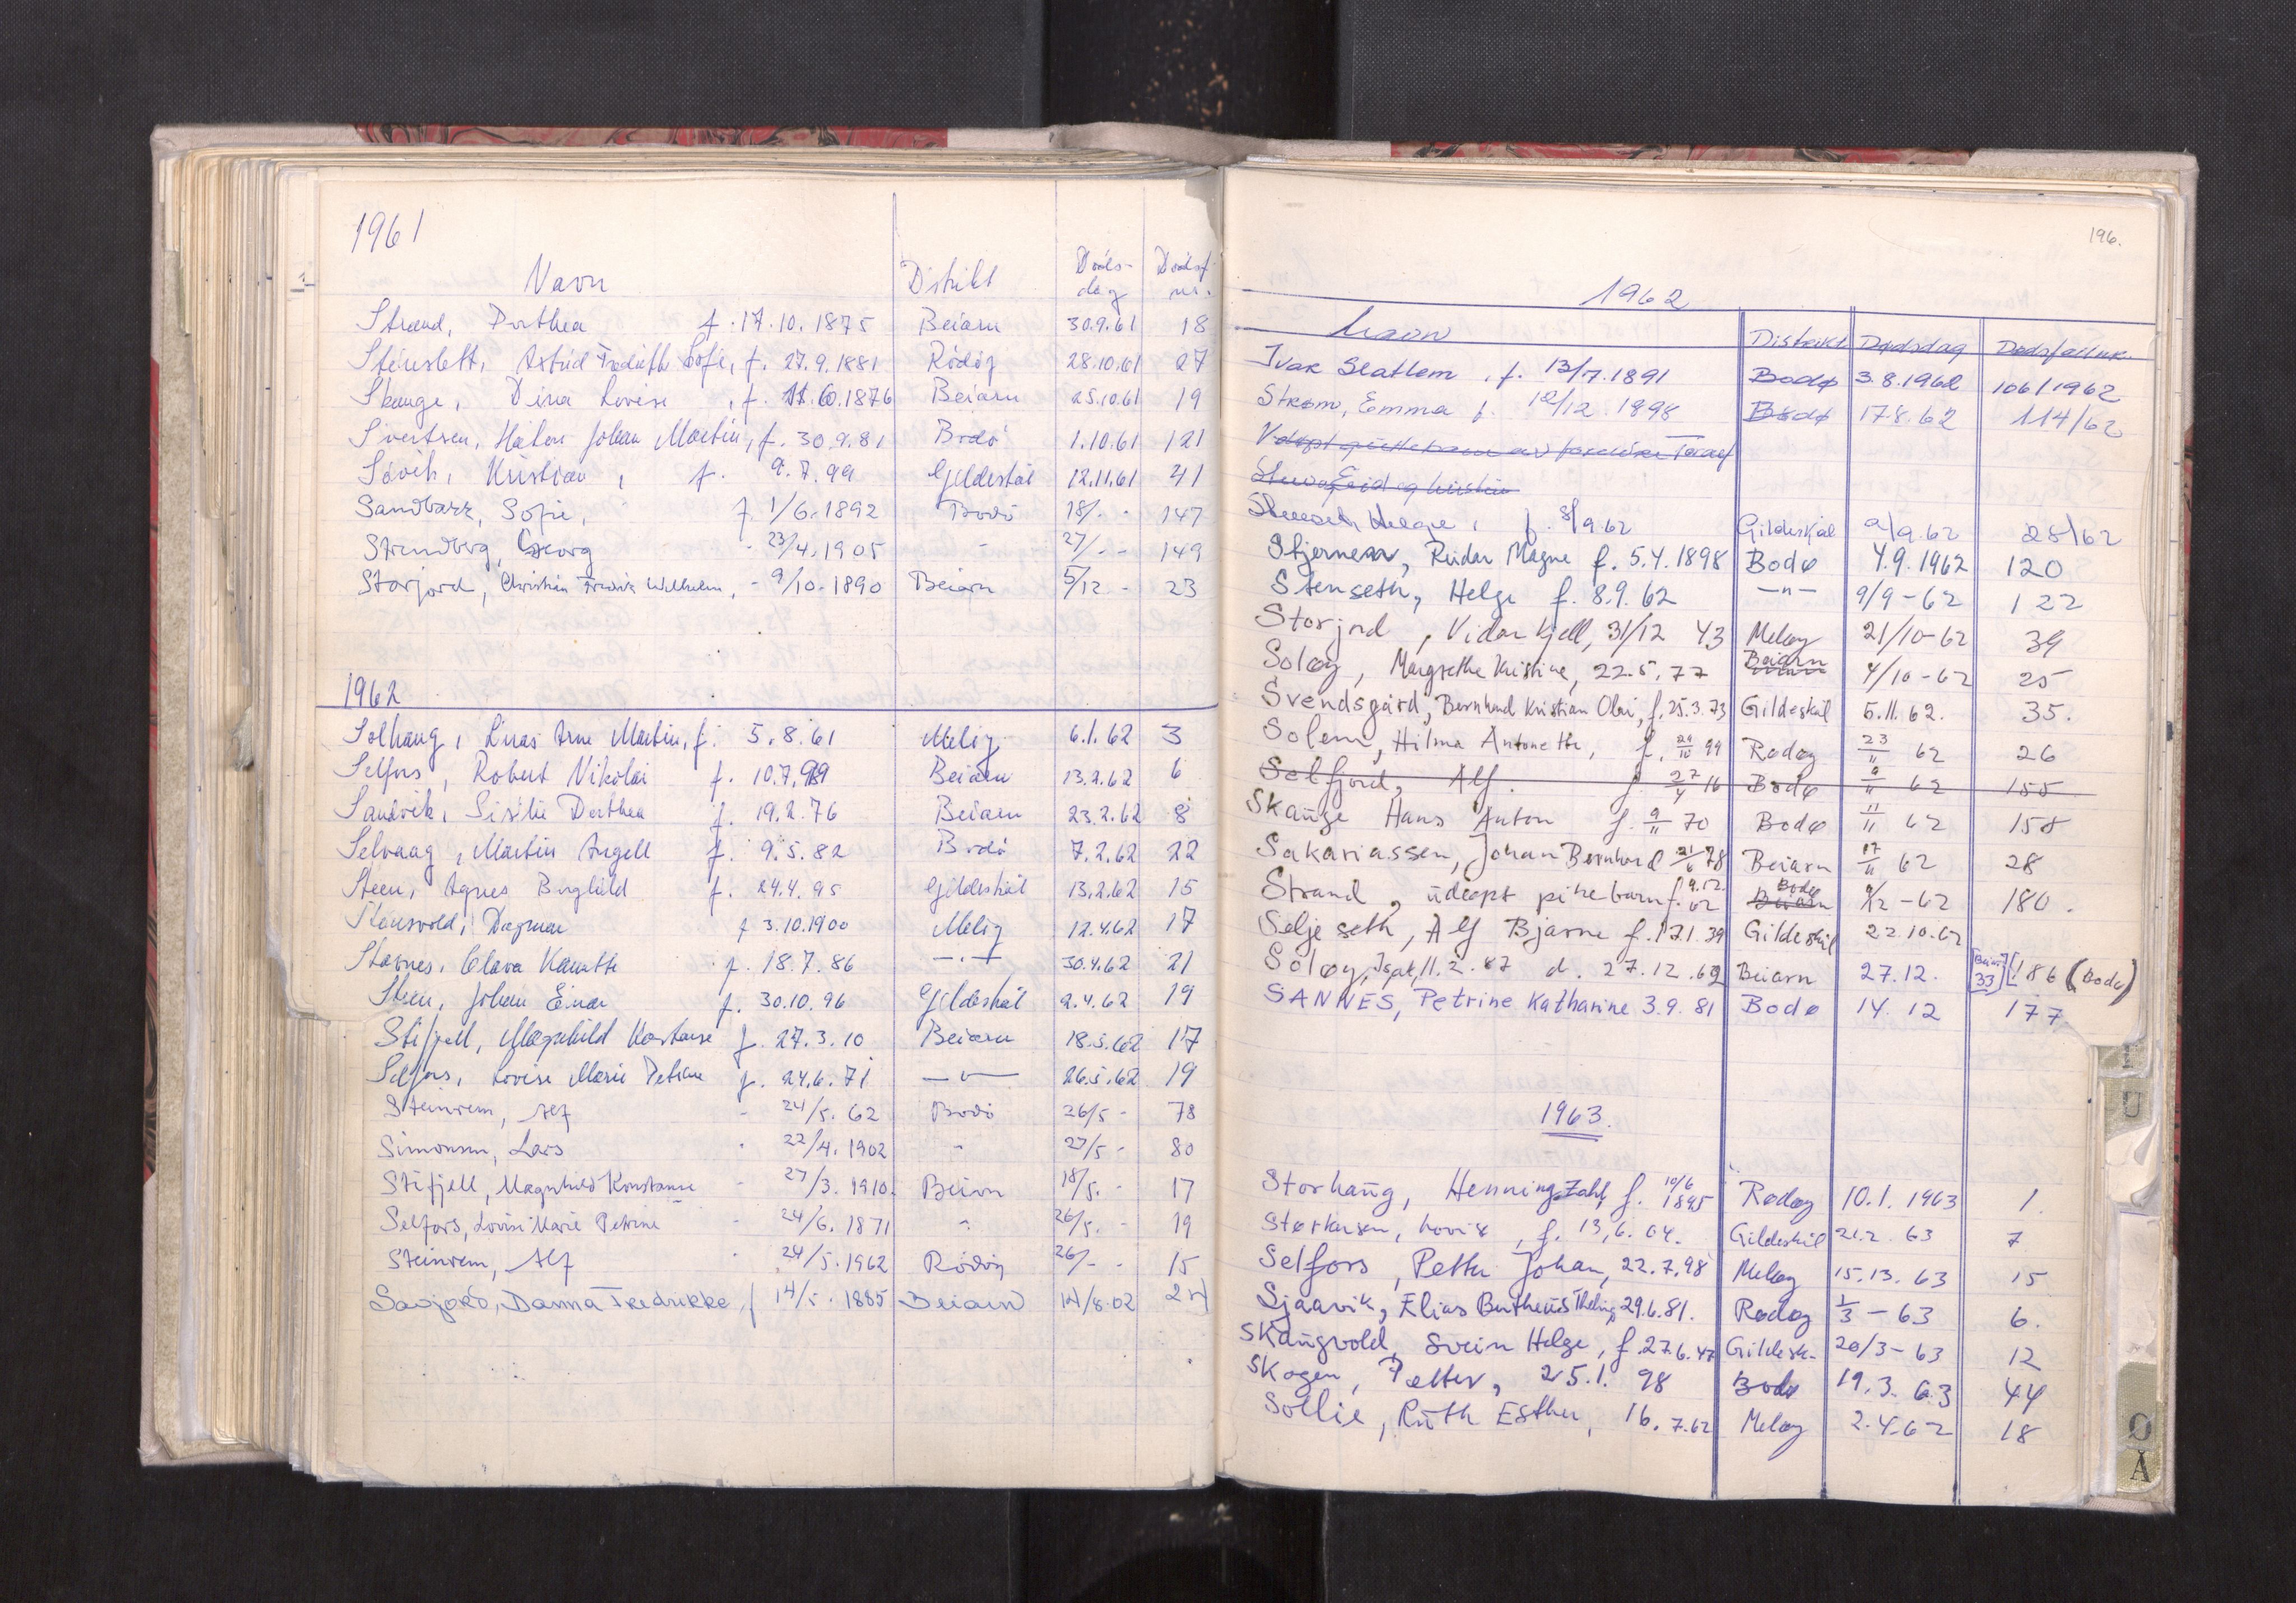 1961
Navn Distrikt Døds- Dødsf
dag nr.
Strand, Dorthea f. 17.10.1875 Beiarn 30.9.61 18
Steinslett, Astrid Fredrikke Sofie, f. 27.9.1881 Rödöy 28.10.61 27
Skauge, Dina Lovise, f. 11.6.1876 Beiarn 25.10.61 19
Sivertsen, Håkon Johan Martin, f. 30.9.81 Bodö 1.10.61 121
Sövik, Kristian, f. 9.7.99 Gildeskål 12.11.61 41
Sandbakk, Sofie, f 1/6-1892 Bodö 18/- - 147
Strandberg, Georg - 23/4.1905 - 27/- - 149
Storjord, Christian Fredrik Wilhelm, - 9/10-1890 Beiarn 5/12 - 23
1962
Solhaug, Linas Arne Martin, f. 5.8.61 Melöy 6.1.62 3
Selfors, Robert Nikolai f. 10.7.99 Beiarn 13.2.62 6
Sandvik, Dorthea f. 19.2.76 Beiarn 23.2.62 8
Selvaag, Martin Angell f. 9.5.82 Bodö 7.2.62 22
Steen, Agnes Berglild f. 24.4.95 Gildeskål 13.2.62 15
Stensvold, Dagmar f 3.10.1900 Melöy 12.4.62 17
Starnes, Clara f. 18.7.86 -.- 30.4.62 21
Steen, Johan Einar f. 30.10.96 Gildeskål 2.4.62 19
Stifjell, Magnhild Konstanse f. 27.3.10 Beiarn 18.5.62 17
Selfors, Lovise Marie Petrine f. 24.6.71 -"- 26.5.62 19
Steinrem, Alf - 24/5.62 Bodö 26/5 - 78
Simonsen, Lars - 22/4.1902 - 27/5 - 80
Stifjell, Magnhild Konstanse - 27/3.1910. Beiarn 18/5. - 17
Selfors, Lovise Marie Petrine - 24/6.1871 - 26/5. - 19
Steinrem, Alf - 24/5.1962 Rödöy 26/- - 15
Savjord, Danna Fredrikke, f 14/5.1885 Beiarn 14/8.62 24
196.
1962
Navn Distrikt Dødsdag Dødsfallnr.
Ivar Slatlem, f. 13/7.1891 Bodø 3.8.1962 106/1962
Strøm, Emma f. 12/12.1898 Bodø 17.8.62 114/62
Udøpt guttebarn av foreldre
Stenseth, Helge, f. 8/9.62 Gildeskål 9/9.62 28/62
Stjernen, Reidar Magne f. 5.4.1898 Bodø 4.9.1962 120
Stenseth, Helge f. 8.9.62 -"- 9/9-62 122
Storjord, Vidar Kjell, 31/12 43 Meløy 21/10-62 39
Soløy, Margrethe Kristine, 22.5.77 Beiarn 4/10-62 25
Svendsgård, Bernhard Kristian Olai, f. 25.3.73 Gildeskål 5.11.62. 35.
Solem, Hilma Antonette, f. 29/10 99 Rødøy 23/11 62 26
Selfjord, Alf. f 27/4 16 Bodø 9/11 62 155
Skauge Hans Anton f. 9/11 70 Bodø 11/11 62 158
Sakariassen, Johan Bernhard 21/6 78 Beiarn 17/11 62 28
Strand, udøpt pikebarn f. 9.12. 62 Bodø 9/12-62 180.
Seljeseth, Alf Bjarne f. 17.1.39 Gildeskål 22.10.62
Soløy, Isak, 11.2.87 d. 27.12.62 Beiarn 27.12. [Beiarn 33] [186 (Bodø)
SANNES, Petrine Katharine 3.9.81 Bodø 14.12 177
1963.
Storhaug, Henning Zahl, f. 10/6 1895 Rødøy 10.1.1963 1.
Størkersen, Lovise, f. 13,6.04. Gildeskål 21.2.63 7
Selfors, Petter Johan, 22.7.98 Meløy 15.13.63 15
Sjaavik, Elias Bertheus, 29.6.81. Rødøy 1/3-63 6.
Skaugvold, Svein Helge, f. 27.6.47 Gildesk. 20/3-63 12
Skogen, Petter, 25.1.98 Bodø 19.3.63 44
Sollie, Ruth Esther, 16.7.62 Meløy 2.4.62 18
U
Ø
Å